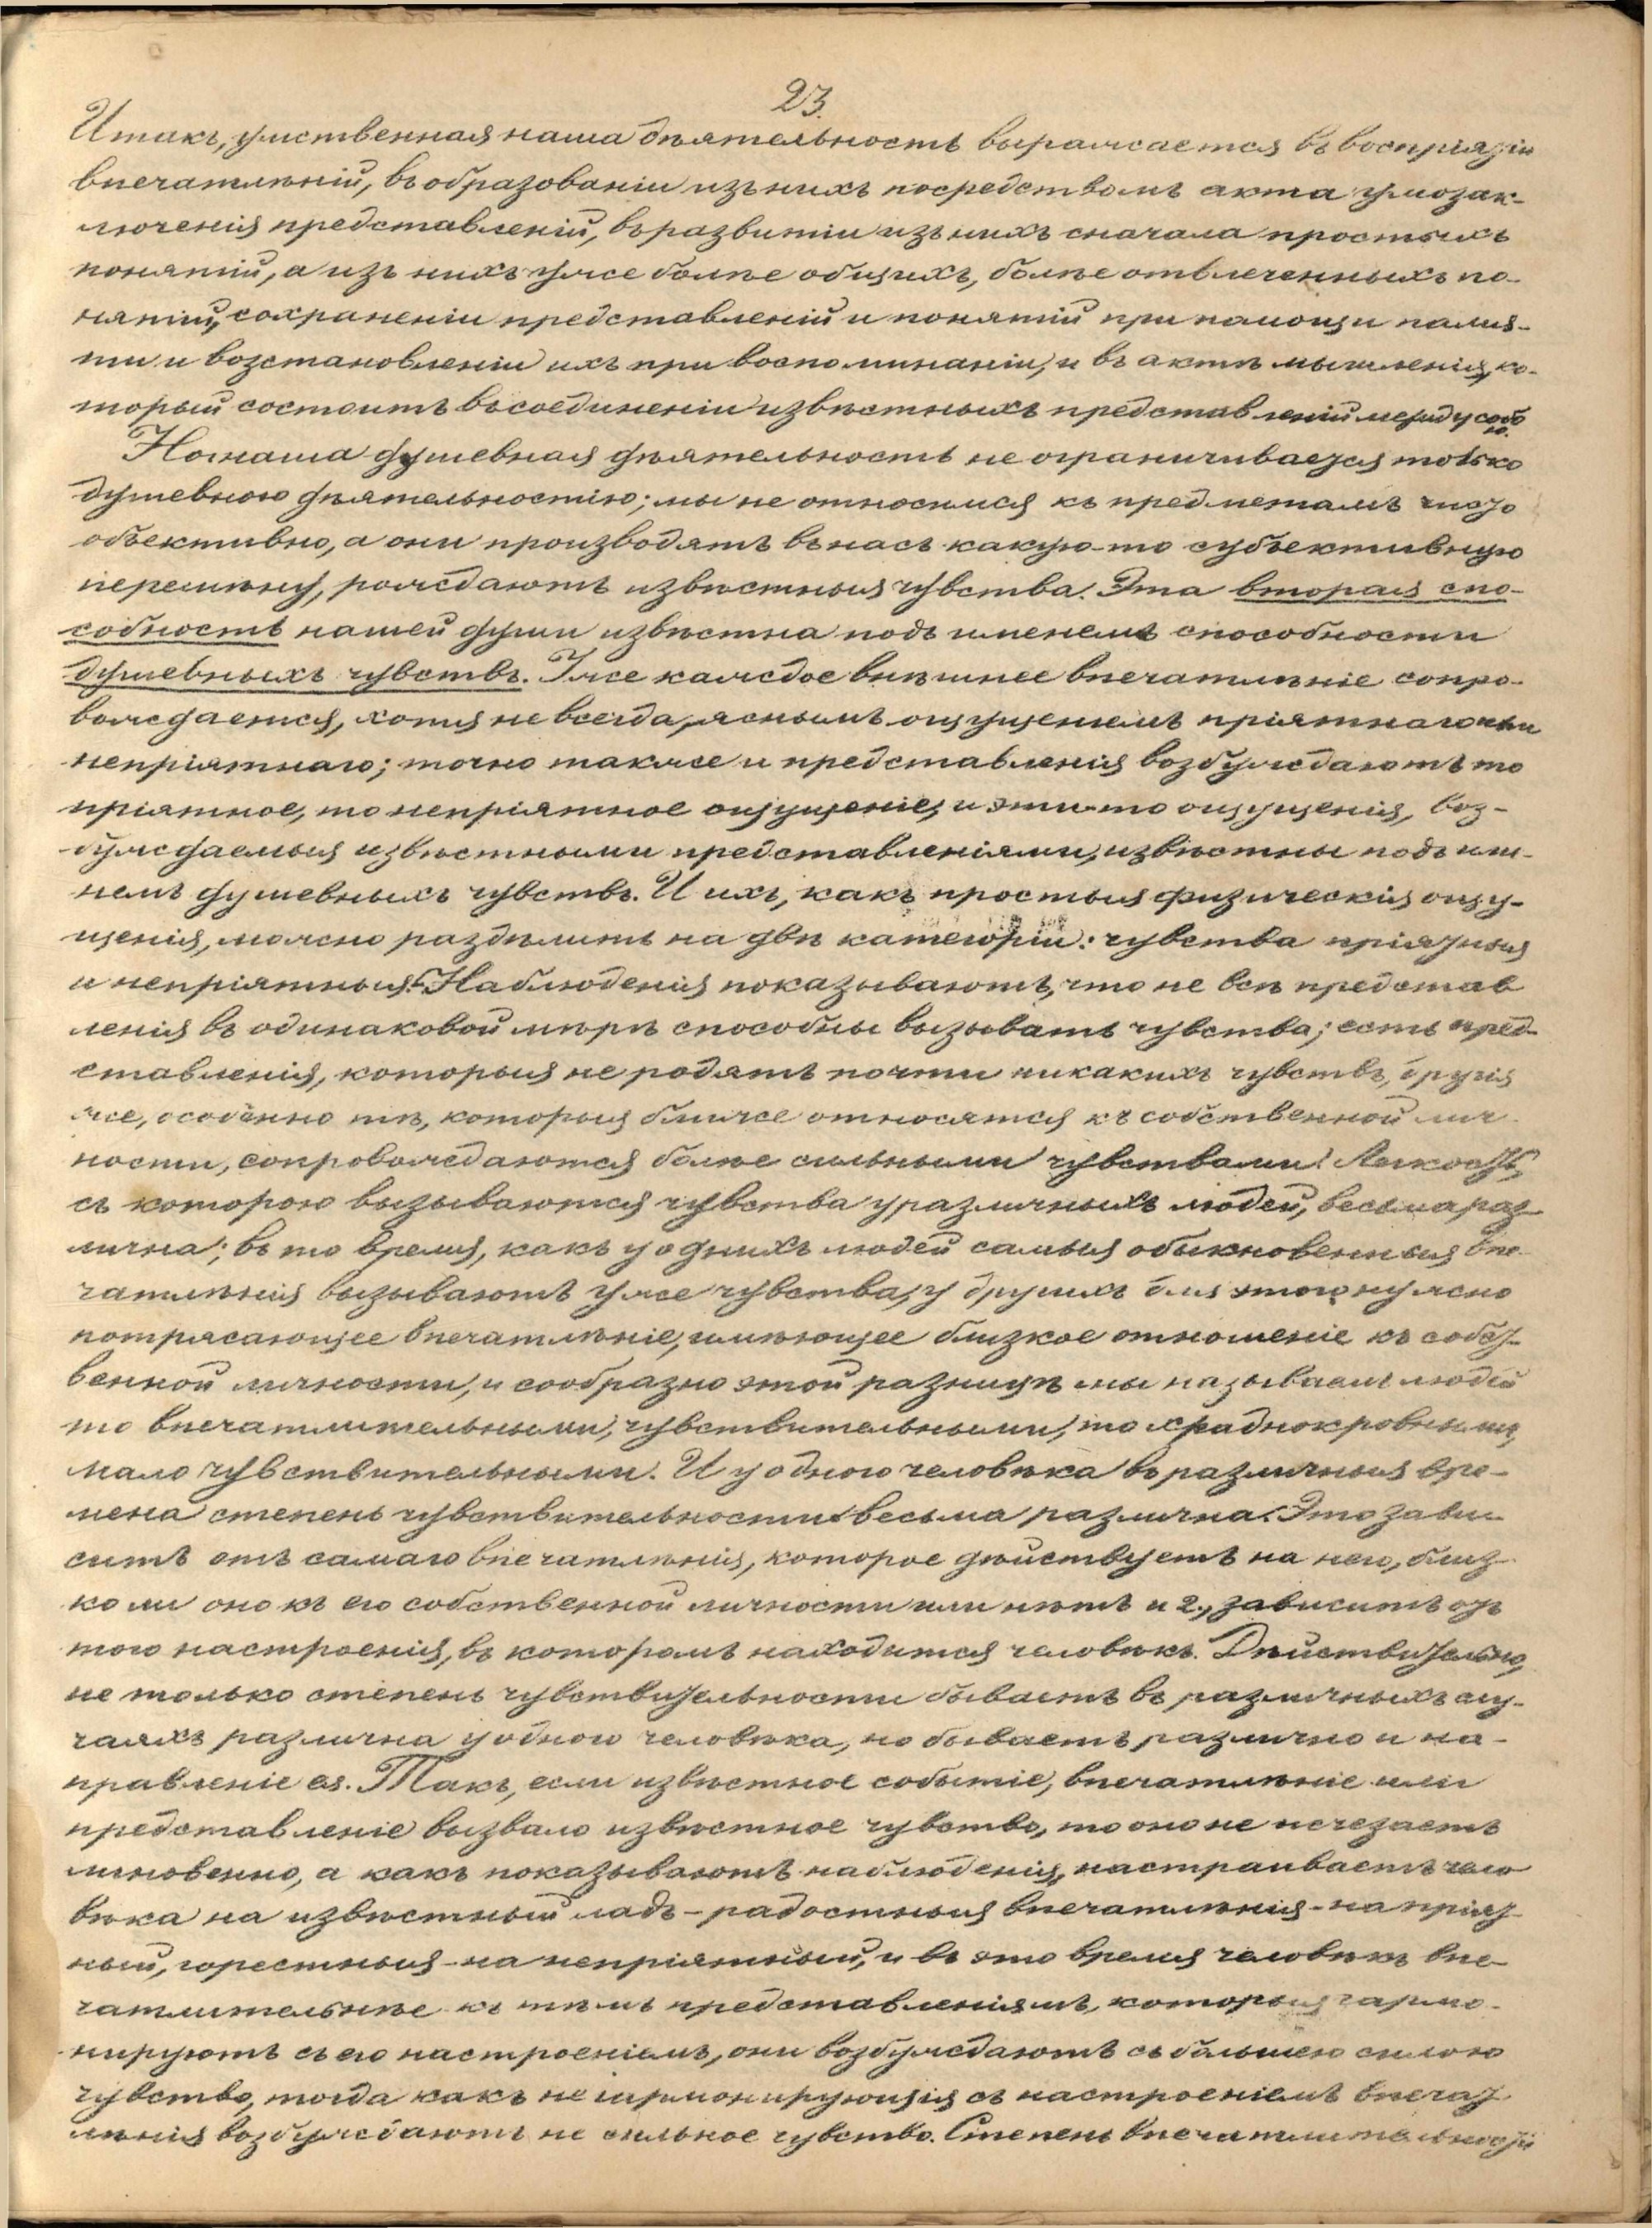 23.
Итакъ, умственная наша дѣятельность выражается въ воспріятіи
впечатлѣній, въ образованіи изъ нихъ посредствомъ акта умозак-
люченія представленій, въ развитіи изъ нихъ сначала простыхъ
понятій, а изъ нихъ уже болѣе общихъ, болѣе отвлеченныхъ по-
нятій, сохраненіи представленій и понятій при помощи памя-
ти и возстановленіи ихъ при воспоминаніи, и въ актѣ мышленія, ко-
торый состоитъ въ соединеніи извѣстныхъ представленій между собою.
Но наша душевная дѣятельность не ограничивается только
душевною дѣятельностію; мы не относимся къ предметамъ чисто
объективно, а они производятъ въ насъ какую-то субъективную
перемѣну, рождаютъ извѣстныя чувства. Эта вторая спо-
собность нашей души извѣстна подъ именемъ способности
душевныхъ чувствъ. Уже каждое внѣшнее впечатлѣніе сопро-
вождается, хотя не всегда, яснымъ ощущеніемъ пріятнаго или
непріятнаго; точно также и представленія возбуждаютъ то
пріятное, то непріятное ощущеніе, и эти-то ощущенія, воз-
буждаемыя извѣстными представленіями, извѣстны подъ име-
немъ душевныхъ чувствъ. И ихъ, какъ простыя физическія ощу-
щенія, можно раздѣлить на двѣ категоріи: чувства пріятныя
и непріятныя. Наблюденія показываютъ, что не всѣ представ
ленія въ одинаковой мѣрѣ способны вызывать чувства; есть пред-
ставленія, которыя не родятъ почти никакихъ чувствъ, другія
же, особенно тѣ, которыя ближе относятся къ собственной лич-
ности, сопровождаются болѣе сильными чувствами. Легкость,
съ которою вызываются чувства у различныхъ людей, весьма раз-
лична; въ то время, какъ у однихъ людей самыя обыкновенныя впе-
чатлѣнія вызываютъ уже чувства, у другихъ для этого нужно
потрясающее впечатлѣніе, имѣющее близкое отношеніе къ собст-
венной личности, и сообразно этой разницѣ мы называемъ людей
то впечатлительными, чувствительными, то хладнокровными,
мало чувствительными. И у одного человѣка въ различныя вре-
мена степень чувствительности весьма различна. Это зави-
ситъ отъ самаго впечатлѣнія, которое дѣйствуетъ на него, близ-
ко ли оно къ его собственной личности или нѣтъ и 2., зависитъ отъ
того настроенія, въ которомъ находится человѣкъ. Дѣйствительно,
не только степень чувствительности бываетъ въ различныхъ слу-
чаяхъ различна у одного человѣка, но бываетъ различно и на-
правленіе ея. Такъ, если извѣстное событіе, впечатлѣніе или
представленіе вызвало извѣстное чувство, то оно не исчезаетъ
мгновенно, а какъ показываютъ наблюденія, настраиваетъ чело
вѣка на извѣстный ладъ - радостныя впечатлѣнія - на пріят-
ный, горестныя - на непріятный, и въ это время человѣкъ впе-
чатлительнѣе къ тѣмъ представленіямъ, которыя гармо-
нируютъ съ его настроеніемъ, они возбуждаютъ съ большею силою
чувство, тогда какъ не гармонирующія съ настроеніемъ впечат-
лѣнія возбуждаютъ не сильное чувство. Степень впечатлительности